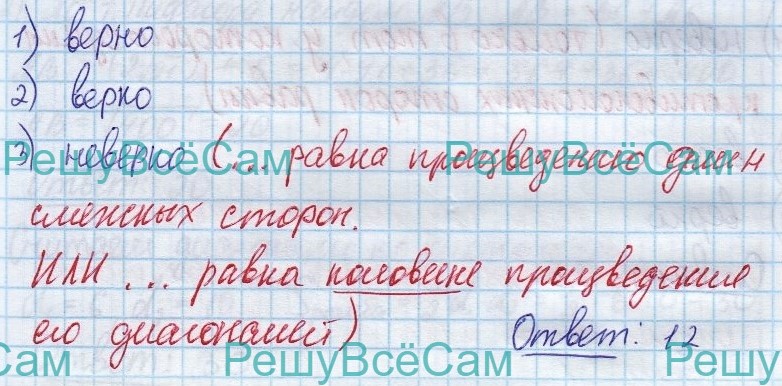 1) верно
2) верно
3) неверно (... равна произведению длин
смежных сторон.
ИЛИ ... равна половине произведения
его диагоналей)
Ответ: 12
РешуВсёСам
РешуВсёСам
Сам
РешуВсёСам
Решу